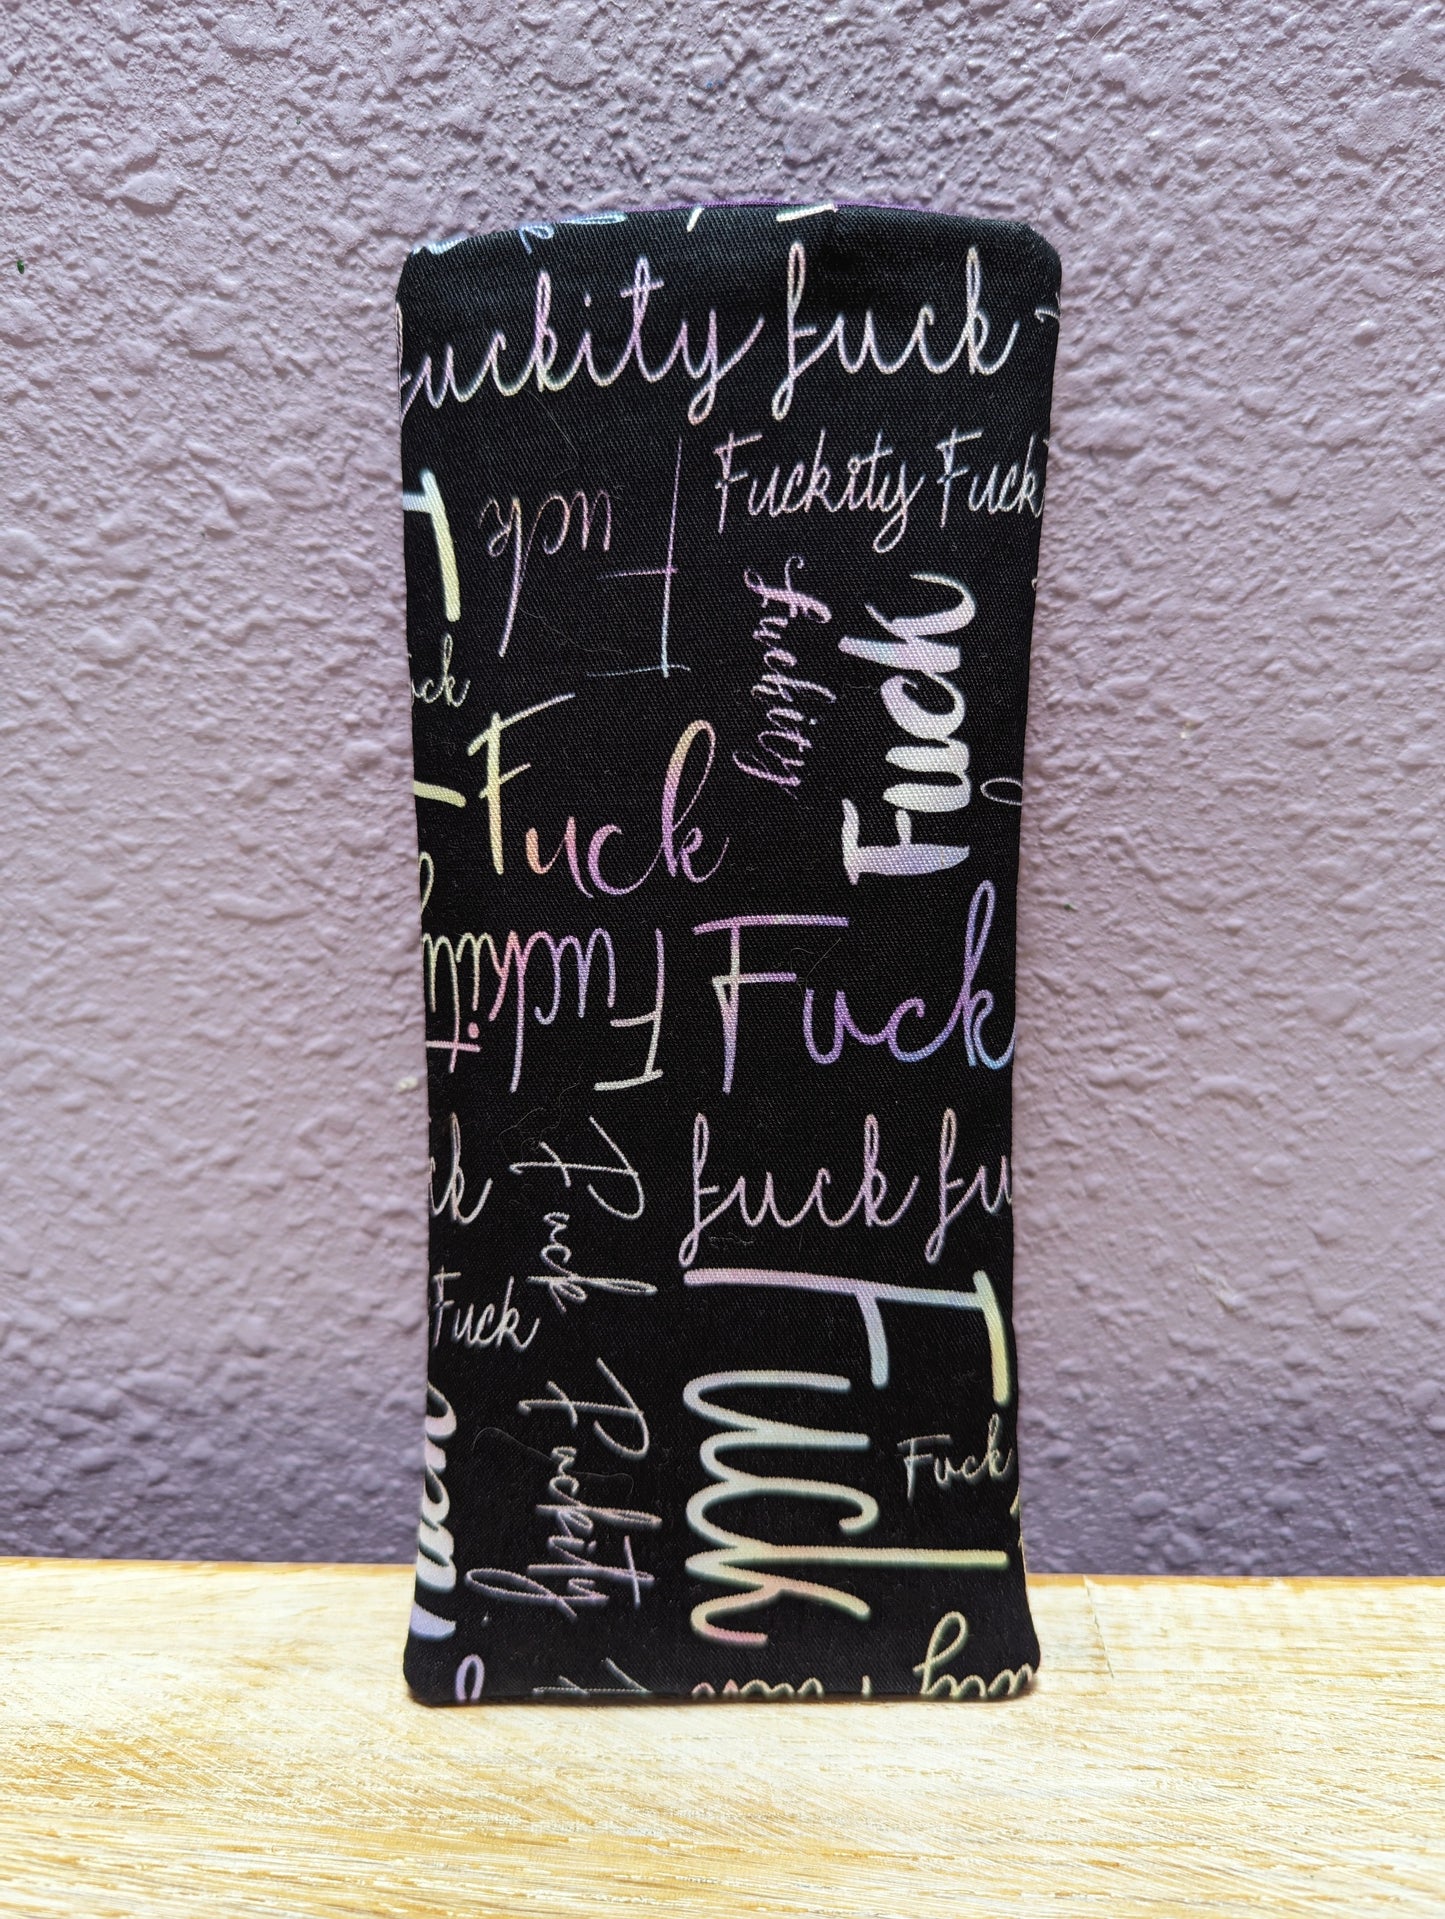 uckity fuck
Fuckity Fuck
Fuck
Fuckity
Fuck
ck
Fuck
Fuckity
Fuck
ck
Fuck
fuck fu
Fuck
Fuck
Fuckity
Fuck